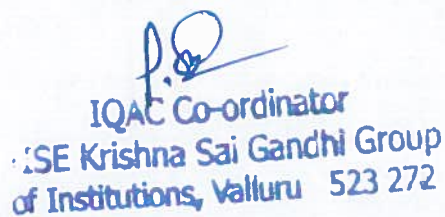 IQAC Co-ordinator
ISE Krishna Sai Gandhi Group
of Institutions, Valluru 523 272